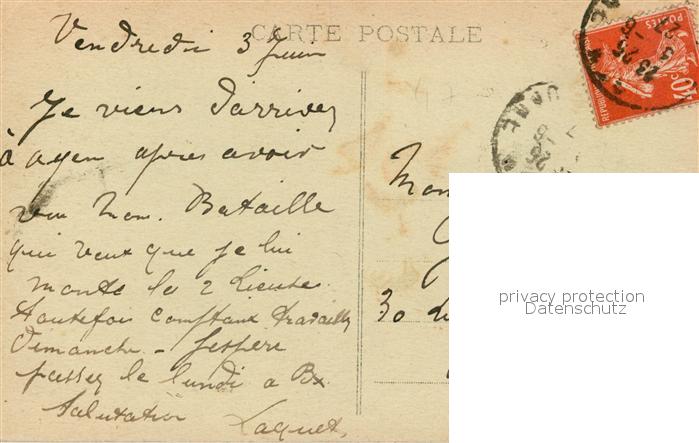 CARTE POSTALE
Vendredi 3 Juin
Je viens d'arriver
à agen apres avoir
vu Mon. Bataille
qui veux que je lui
monte le 2
toutefois travailler
Dimanche - J'espère
passer le lundi a Bx
Salutation
Laquet,
POSTES
10c
Mon
30
privacy protection
Datenschutz